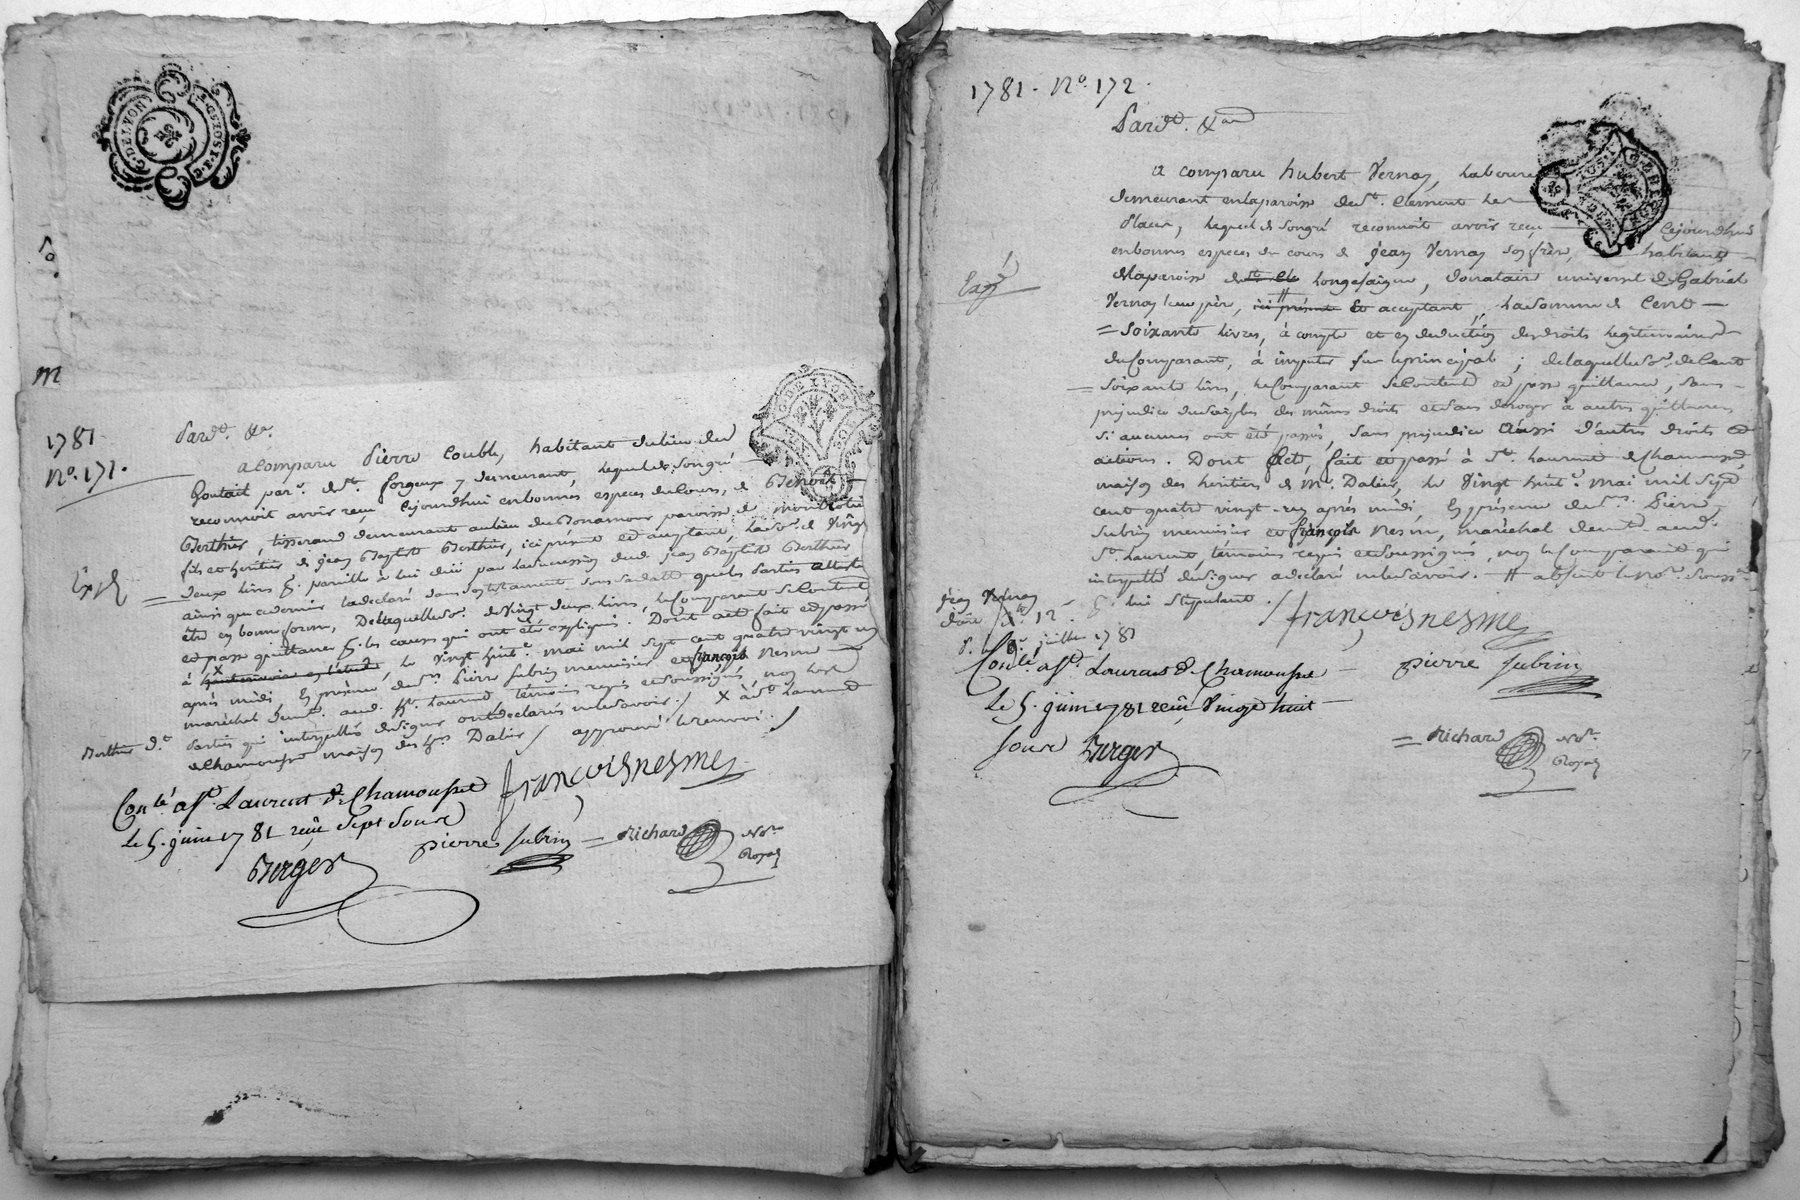 1781
N.° 171.
Pard.t &a.
a comparu Pierre Couble, habitant du lieu du
Goutail par.e de St. forgeux y demeurant, lequel de son gré
reconnoit avoir reçu cejourdhui en bonnes especes du cours, de Benoit
Berthier, tisserand demeurant au lieu du Bonamour paroisse de montrotier
fils et heritier de jean Baptiste Berthier, ici présent et acceptant, la so.e de vingt
deux livres p.r pareille à lui düe par la succession dud. jean Baptiste Berthier
ainsi que ce dernier la declaré dans son testament sous sa datte quelles parties attestent
être en bonne forme, De laquelle so.e de vingt deux livres, le Comparant se Contente
et passe quittance p.r les causes qui ont été expliquées. Dont acte fait et passé
à le vingt huit.e mai mil sept cent quatre vingt un
après midi En présence de s.rs Pierre subrin menuisier et françois nesme
maréchal demt. aud. St. laurent témoins requis et soussignés, non les
parties qui interpellées de signer ont déclarés ne le savoir. / X à St. laurent
de Chamousset maison des h.rs Dalin / approuvé le renvoi. /
Exp.d
Berthier d.t
françois nesme
Conlé a St. Laurent de Chamousset
Le 5. juin 1781 reçû Sept sous
Berger
pierre subrin
= Richard
No.re
Royal
1781. N.° 172.
Pard.t &a
a comparu hubert Vernay, laboure
demeurant en la paroisse de St. Clement les
Places, lequel de son gré reconnoit avoir reçu cejourdhui
en bonnes especes du cours de jean Vernay son frère, habitant
de la paroisse de longesaigne, donataire universel de Gabriel
Vernay leur père, ici présent et acceptant, la somme de Cent
= soixante livres, à compte et en deduction des droits legitimaires
du Comparant, à imputer sur le principal ; de laquelle so.e de Cent
= soixante livres, le Comparant se Contente et passe quittance, sans
prejudice du surplus des mêmes droits et sans deroger à autres quittances
si aucunes ont été passées, sans prejudice aussi d'autres droits et
actions. Dont Acte, fait et passé à St. laurent de Chamousset,
maison des heritiers de M.e Dalin, le vingt huit.e mai mil sept
cent quatre vingt un après midi, En présence de s.rs Pierre
subrin menuisier et françois nesme, maréchal demt. aud.
St. laurent, témoins requis et soussignés, non le Comparant qui
interpellé de signer a declaré ne le savoir. # absent le No.re soussigné
p.r lui stipulant. /
Exp.é
jean Vernay
juillet 1781
françois nesme
Conlé a St. Laurent de Chamousset
Le 5. juin 1781 reçû Vingt huit
sous
Berger
pierre subrin
= Richard
No.re
Royal